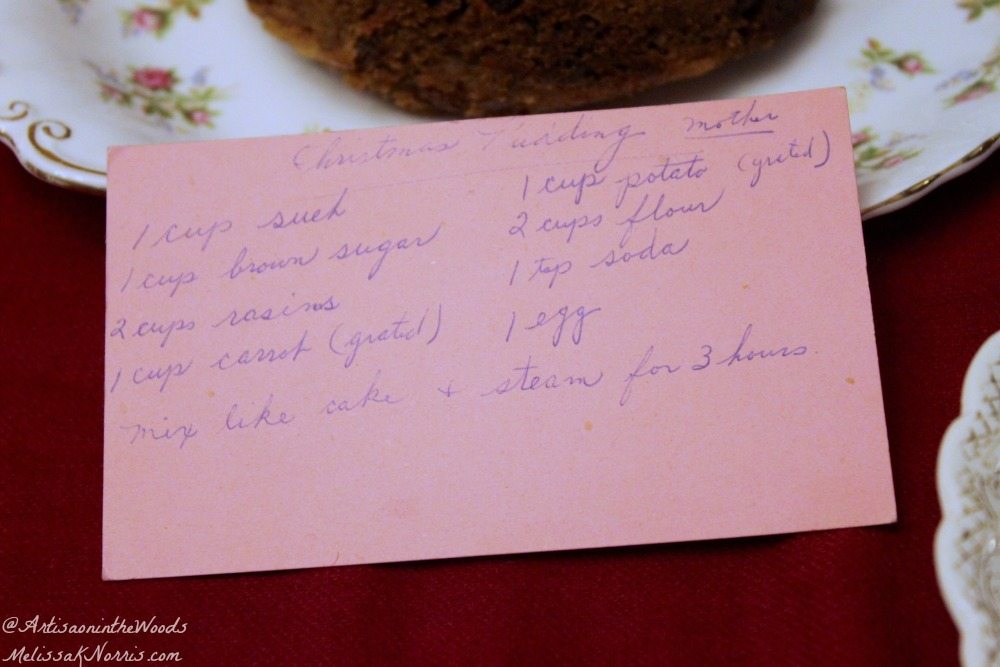 Christmas Pudding mother
1 cup sueh
1 cup brown sugar
2 cups rasins
1 cup carrot (grated)
1 cup potato (grated)
2 cups flour
1 tsp soda
1 egg
mix like cake + steam for 3 hours.
@ArtisaonintheWoods
MelissaKNorris.com